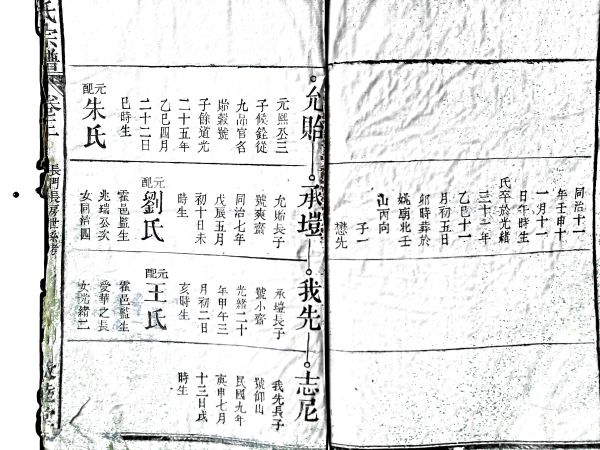 同治十一
年壬申十
一月十一
日午時生
氏卒於光緒
三十一年
乙巳十一
月初五日
卯時葬於
姚廟北壬
山丙向
子一
懋先
允貽
元熙公三
子候銓從
九品官名
貽穀號
子餘道光
二十五年
乙巳四月
二十二日
巳時生
元配 朱氏
承塏
允貽長子
號爽齋
同治七年
戊辰五月
初十日未
時生
元配 劉氏
霍邑監生
兆瑞公次
女同治四
我先
承塏長子
號小齋
光緒二十
年甲午三
月初二日
亥時生
元配 王氏
霍邑監生
愛華之長
女光緒二
志尼
我先長子
號仰山
民國九年
庚申七月
十三日戌
時生
氏宗譜
卷三
長門長房世系